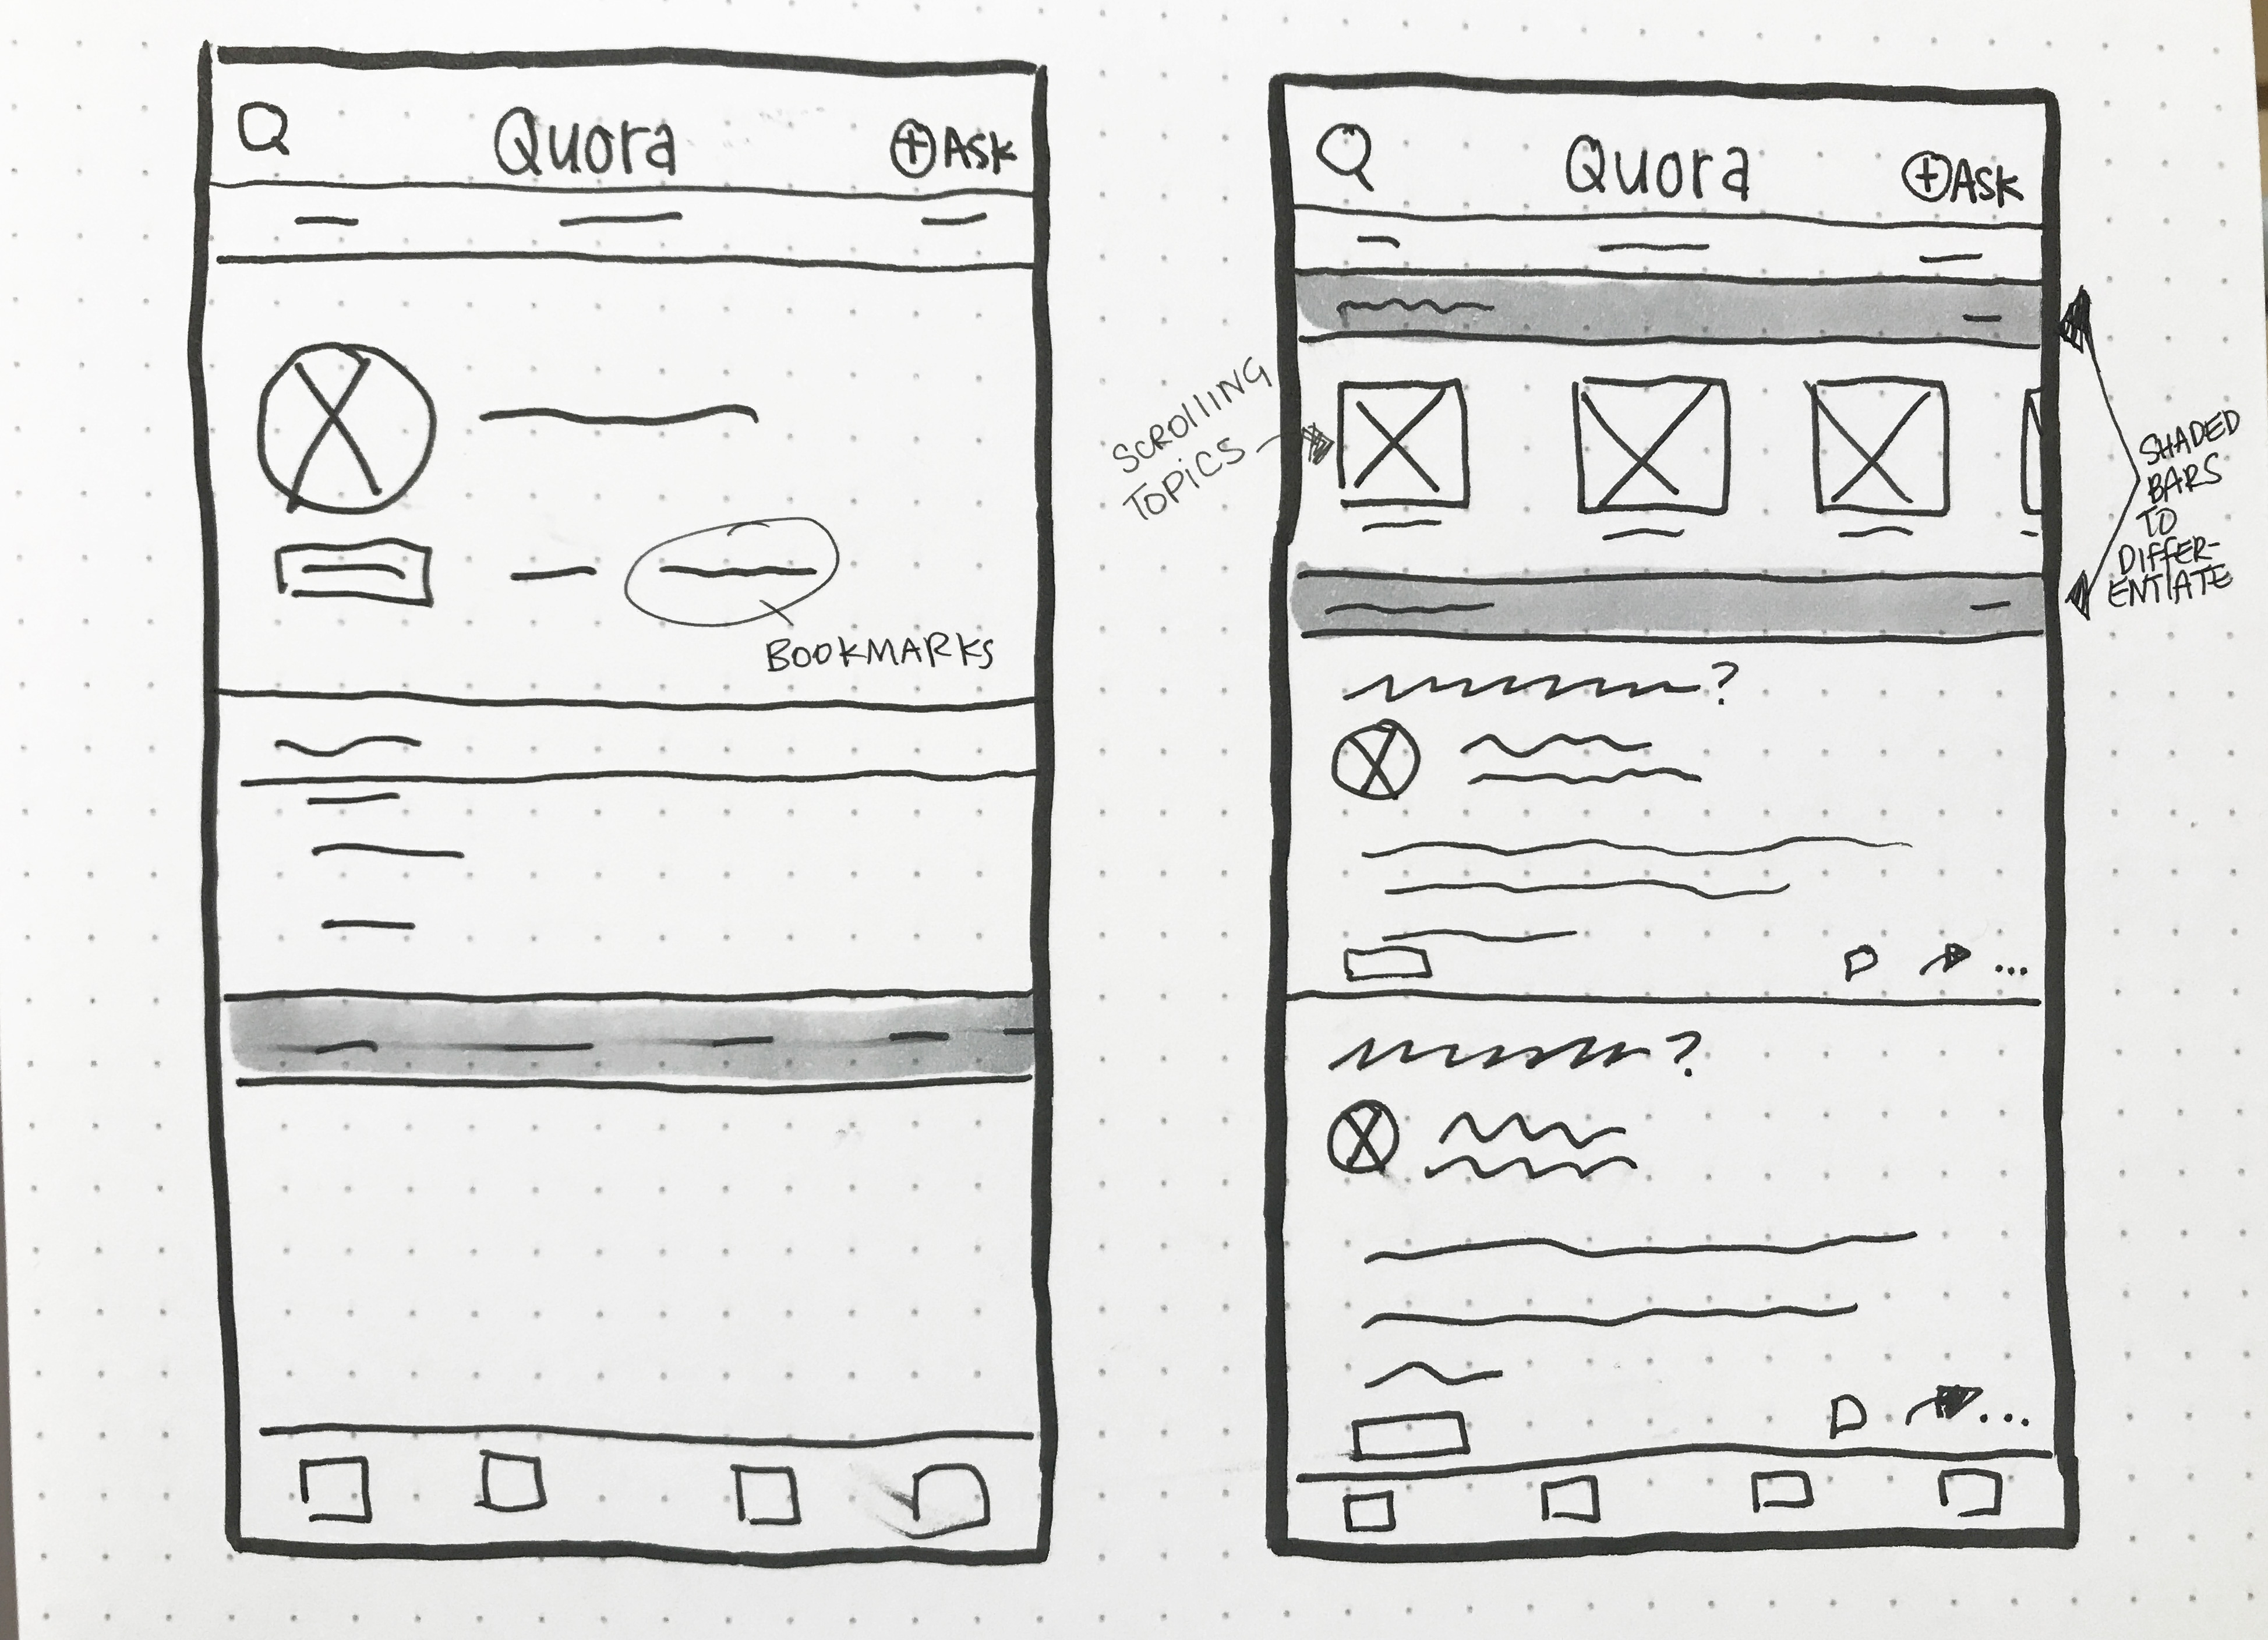 Quora
+ ASK
BOOKMARKS
Quora
+ ASK
SCROLLING
TOPICS
SHADED
BARS
TO
DIFFER-
ENTIATE
?
...
?
...